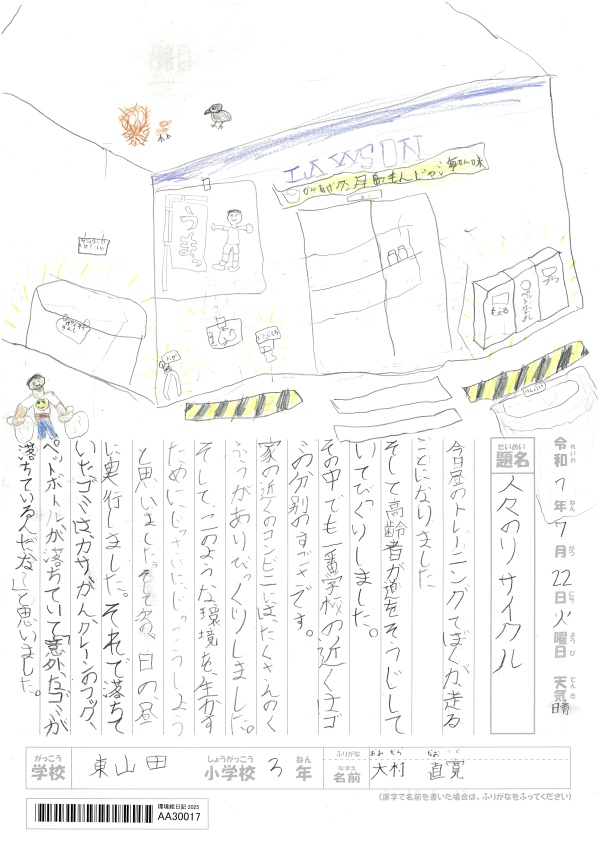 LAWSON
からあげクン 月島もんじゃ 毎日味
うまっ
もえる
ペットボトル
カン
令和7年7月22日火曜日 天気 晴
れいわ ねん がつ にち ようび てんき
だいめい
題名 人々のリサイクル
今日昼のトレーニングでぼくが走る
ことになりました
そして高齢者が道をそうじして
いてびっくりしました。
その中でも一番学校の近くはゴ
ミの分別のすごさです。
家の近くのコンビニには、たくさんのく
ふうがありびっくりしました。
そしてこのような環境を生かす
ためにじっさいにじっこうしよう
と思いました。そして次の日の昼
に実行しました。それで落ちて
いたゴミは、カサ、かん、クレーンのフック、
ペットボトルが落ちていて「意外なゴミが
落ちているんだな」と思いました。
がっこう しょうがっこう ねん ふりがな おおむら なおひろ
学校 東山田 小学校 3年 なまえ 名前 大村 直寛
(漢字で名前を書いた場合は、ふりがなをふってください)
環境絵日記 2025
AA30017